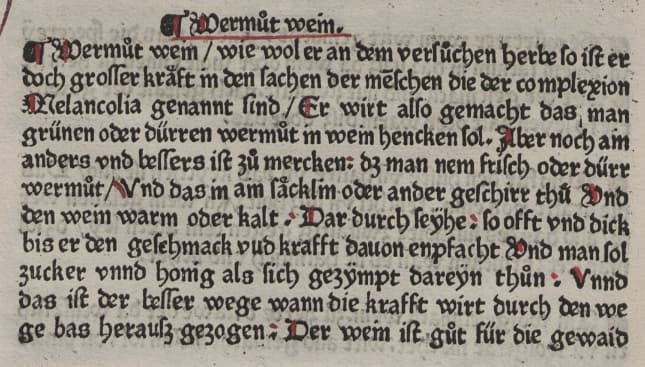 ¶ Wermůt wein.
¶ Wermůt wein / wie wol er an dem versůchen herbe so ist er
doch grosser kråft in den sachen der mēschen die der complexion
Melancolia genannt sind / Er wirt also gemacht das man
grünen oder dürren wermůt in wein hencken sol. Aber noch ain
anders vnd bessers ist zů mercken: dz man nem frisch oder dürr
wermůt / Vnd das in ain såcklin oder ander geschirr thů Vnd
den wein warm oder kalt. Dar durch seÿhe: so offt vnd dick
bis er den geschmack vud krafft dauon enpfacht Vnd man sol
zucker vnnd honig als sich gezÿmpt dareÿn thůn: Vnnd
das ist der besser wege wann die krafft wirt durch den we
ge bas herausz gezogen: Der wein ist gůt für die gewaid